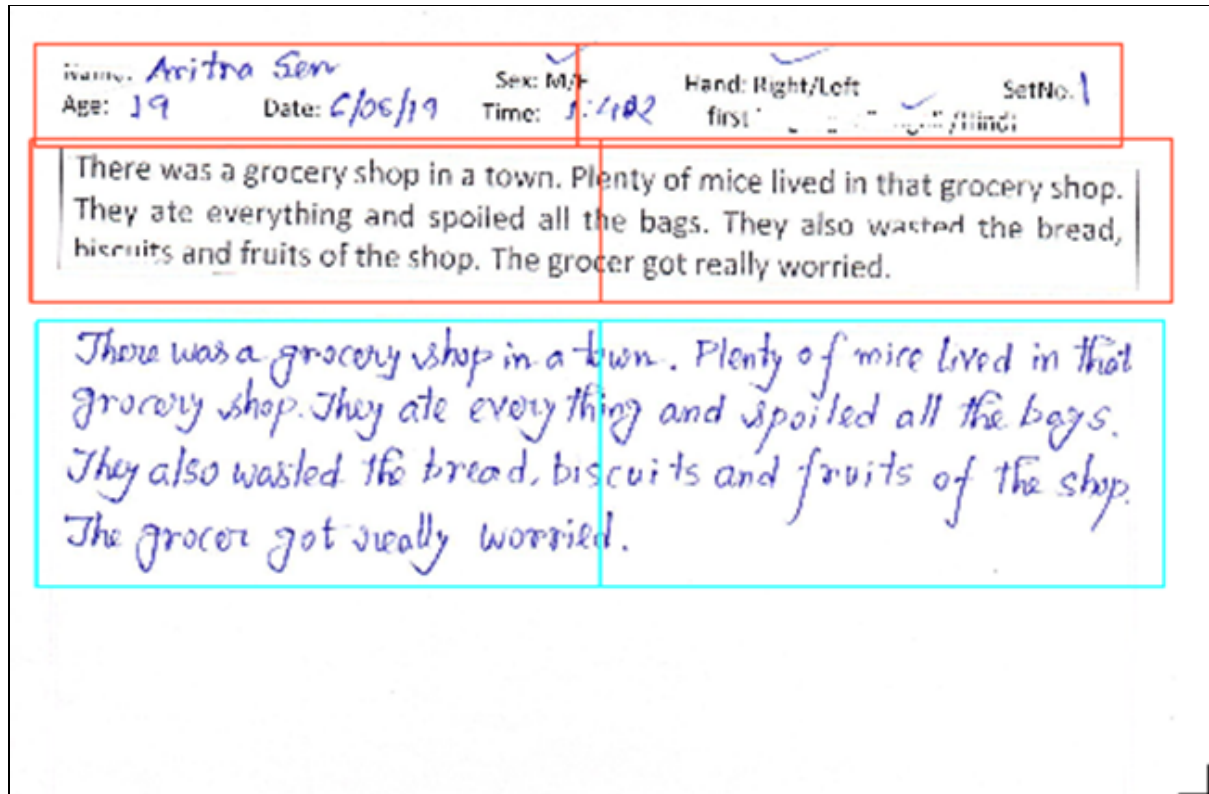 Name: Aritra Sen Sex: M/F Hand: Right/Left SetNo. 1
Age: 19 Date: 6/08/19 Time: first /Hindi
There was a grocery shop in a town. Plenty of mice lived in that grocery shop.
They ate everything and spoiled all the bags. They also wasted the bread,
biscuits and fruits of the shop. The grocer got really worried.
There was a grocery shop in a town. Plenty of mice lived in that
grocery shop. They ate every thing and spoiled all the bags.
They also wasted the bread, biscuits and fruits of the shop.
The grocer got really worried.